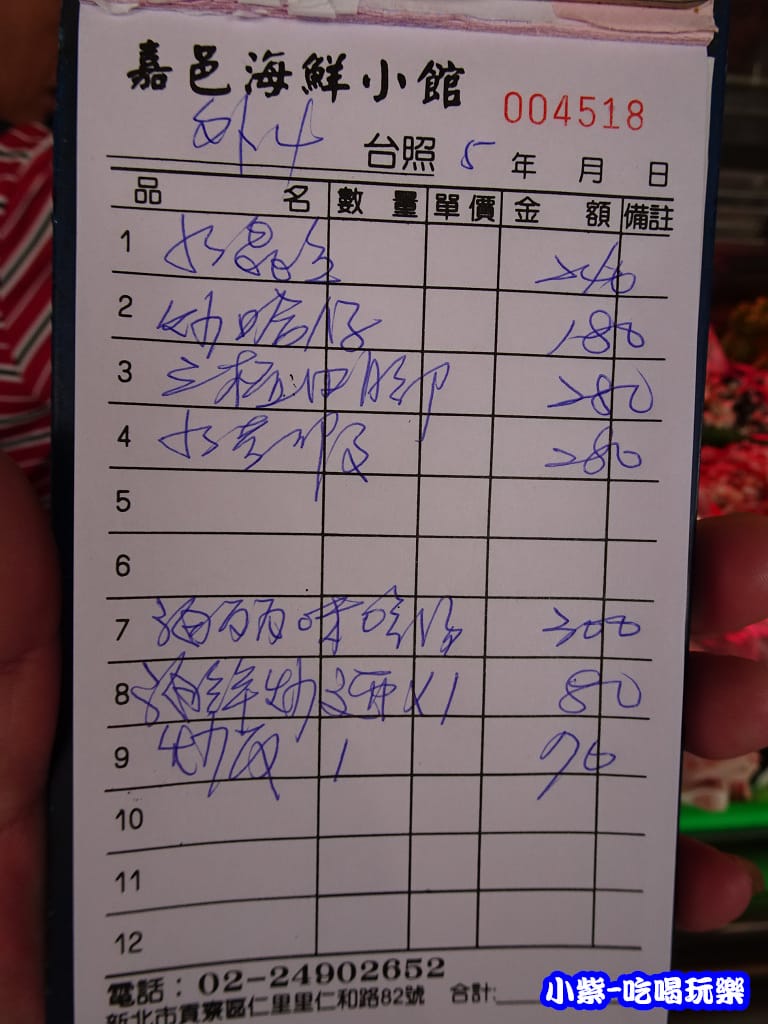 嘉邑海鮮小館
004518
外4 台照 5 年 月 日
品 名 數 量 單 價 金 額 備註
1 水晶 240
2 炒蛤仔 180
3 三杯田 280
4 蝦 280
5
6
7 300
8 海鮮炒麵 X1 80
9 炒飯 1 70
10
11
12
電話：02-24902652
新北市貢寮區仁里里仁和路82號 合計:
小紫-吃喝玩樂